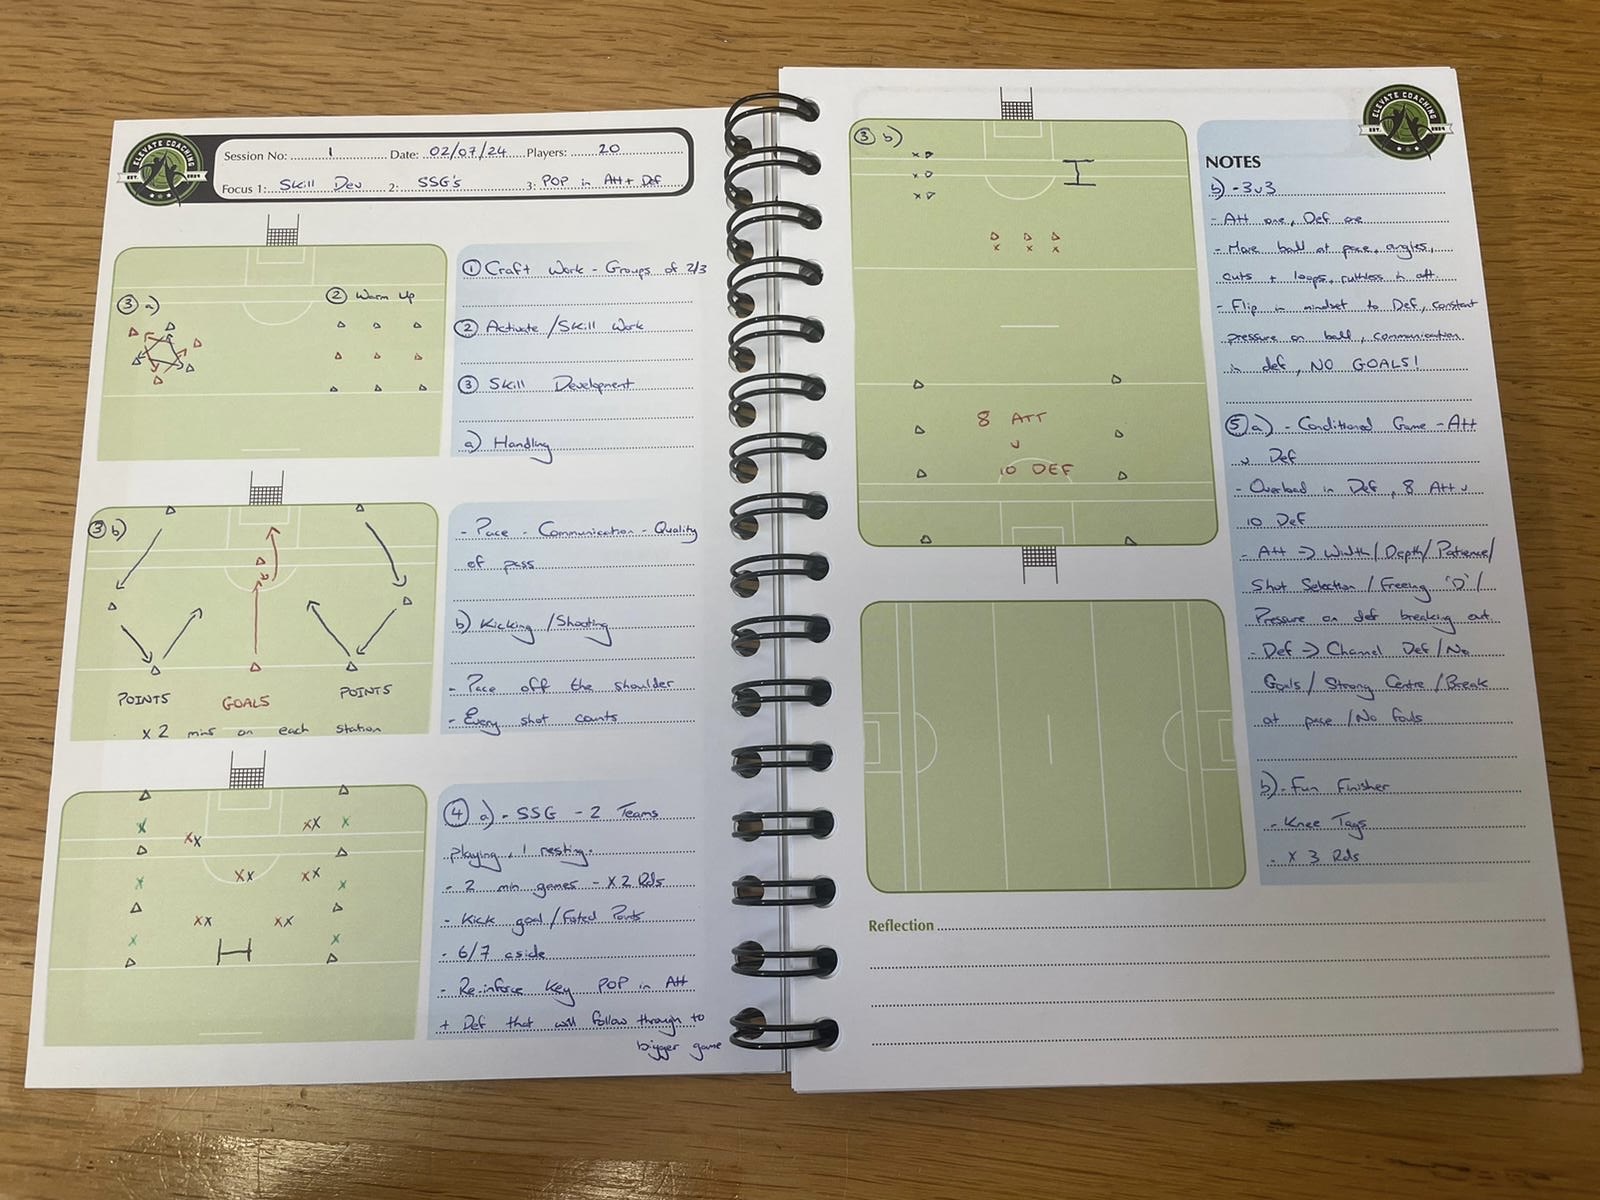 ELEVATE COACHING
EST. 2024
Session No: 1 Date: 02/07/24 Players: 20
Focus 1: Skill Dev 2: SSG's 3: POP in Att + Def
③ a)
② Warm Up
① Craft Work - Groups of 2/3
② Activate/Skill Work
③ Skill Development
a) Handling
③ b)
POINTS GOALS POINTS
x 2 mins on each station
- Pace - Communication - Quality
of pass
b) Kicking/Shooting
- Pace off the shoulder
- Every shot counts
④ a) - SSG - 2 Teams
playing, 1 resting.
- 2 min games - x 2 Rds
- Kick goal/Fisted Points
- 6/7 aside
- Re-inforce Key POP in Att
+ Def that will follow through to
bigger game
③ b)
8 ATT
v
10 DEF
ELEVATE COACHING
EST. 2024
NOTES
b) - 3v3
- Att one, Def one
- Move ball at pace, angles,
cuts + loops, ruthless in att.
- Flip in mindset to Def, constant
pressure on ball, communication
in def, NO GOALS!
⑤ a) - Conditioned Game - Att
v Def
- Overload in Def, 8 Att v
10 Def
- Att -> Width/Depth/Patience/
Shot Selection/Freeing 'D'/
Pressure on def breaking out
- Def -> Channel Def/No
Goals/Strong Centre/Break
at pace/No fouls
b) - Fun Finisher
- Knee Tags
- x 3 Rds
Reflection